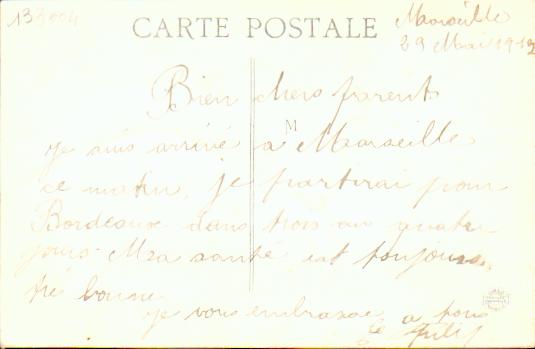 133004
CARTE POSTALE
Marseille
29 Mai 1912
Bien chers parents
M
je suis arrivé a Marseille
ce matin, je partirai pour
Bordeaux dans trois ou quatre
jours Ma santé est toujours
trè bonne
je vous embrasse a tous